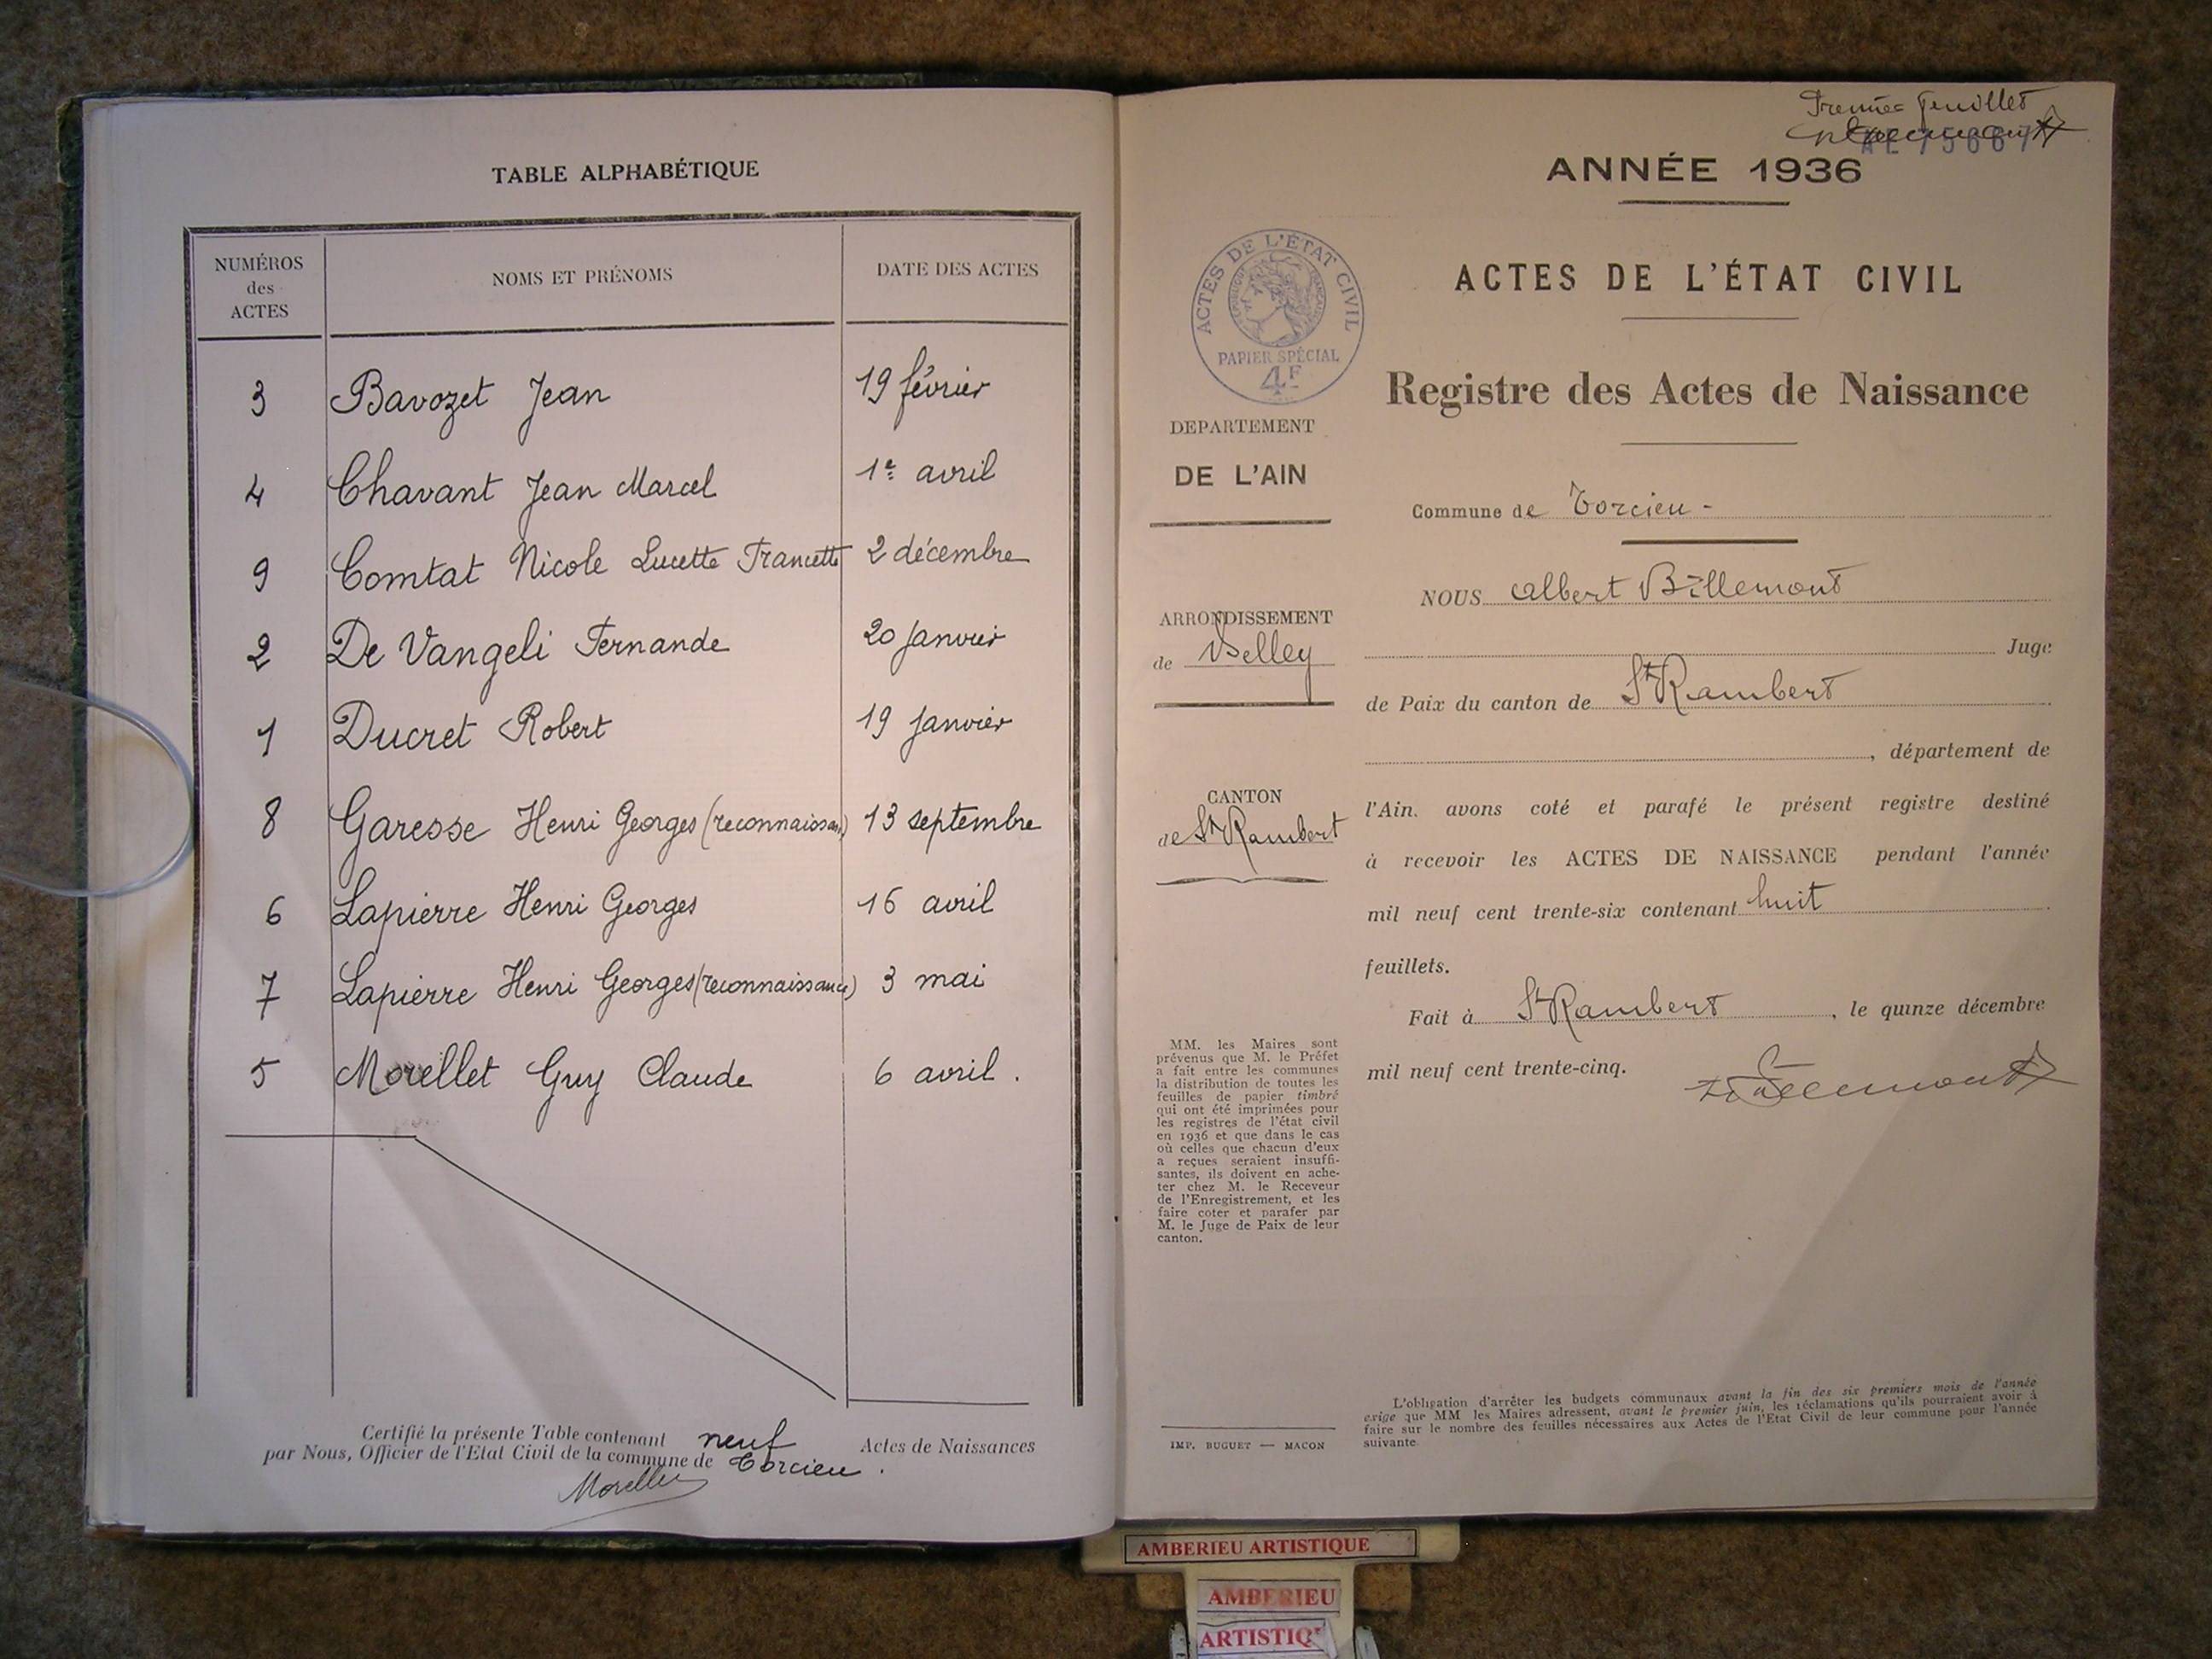 TABLE ALPHABÉTIQUE
NUMÉROS des ACTES NOMS ET PRÉNOMS DATE DES ACTES
3 Bavozet Jean 19 février
4 Chavant Jean Marcel 1er avril
9 Comtat Nicole Lucette Francette 2 décembre
2 De Vangeli Fernande 20 janvier
1 Ducret Robert 19 janvier
8 Garesse Henri Georges (reconnaissance) 13 septembre
6 Lapierre Henri Georges 16 avril
7 Lapierre Henri Georges (reconnaissance) 3 mai
5 Morellet Guy Claude 6 avril.
Certifié la présente Table contenant neuf Actes de Naissances
par Nous, Officier de l'Etat Civil de la commune de Torcieu.
Morellet
Premier feuillet
ANNÉE 1936
ACTES DE L'ÉTAT CIVIL
RÉPUBLIQUE FRANÇAISE
PAPIER SPÉCIAL
4F
DEPARTEMENT
DE L'AIN
ARRONDISSEMENT
de Belley
CANTON
de St Rambert
MM. les Maires sont
prévenus que M. le Préfet
a fait entre les communes
la distribution de toutes les
feuilles de papier timbré
qui ont été imprimées pour
les registres de l'état civil
en 1936 et que dans le cas
où celles que chacun d'eux
a reçues seraient insuffi-
santes, ils doivent en ache-
ter chez M. le Receveur
de l'Enregistrement, et les
faire coter et parafer par
M. le Juge de Paix de leur
canton.
IMP. BUGUET — MACON
ACTES DE L'ÉTAT CIVIL
Registre des Actes de Naissance
Commune de Torcieu -
NOUS Albert Billemont
Juge
de Paix du canton de St Rambert
, département de
l'Ain. avons coté et parafé le présent registre destiné
à recevoir les ACTES DE NAISSANCE pendant l'année
mil neuf cent trente-six contenant huit
feuillets.
Fait à St Rambert, le quinze décembre
mil neuf cent trente-cinq.
Billemont
L'obligation d'arrêter les budgets communaux avant la fin des six premiers mois de l'année
exige que MM les Maires adressent, avant le premier juin, les réclamations qu'ils pourraient avoir à
faire sur le nombre des feuilles nécessaires aux Actes de l'Etat Civil de leur commune pour l'année
suivante
AMBERIEU ARTISTIQUE
AMBERIEU
ARTISTIQ